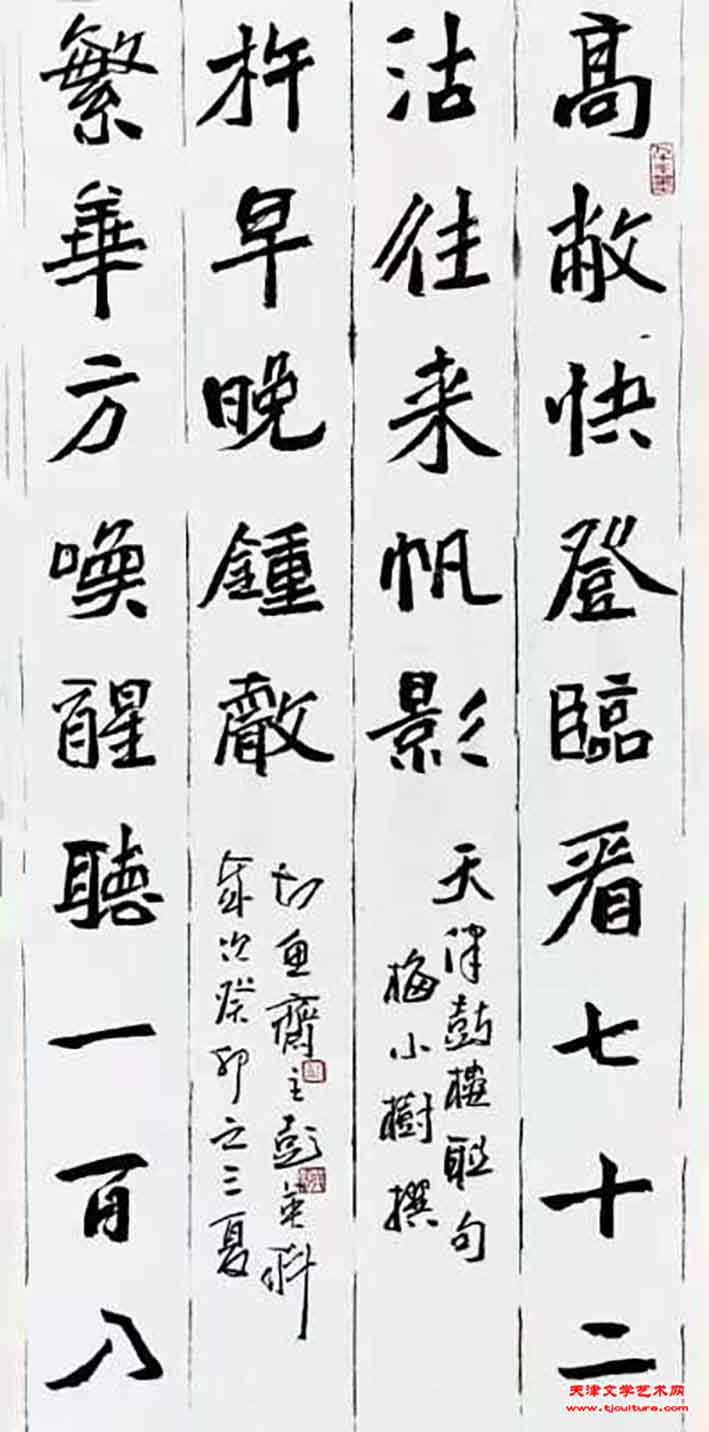 高敞快登臨看七十二
沽往来帆影
天津鼓樓联句
梅小樹撰
繁華方喚醒聽一百八
杵早晚鍾聲
切魚齋主彭英科
歲次癸卯之三夏
天津文学艺术网
www.tjculture.com